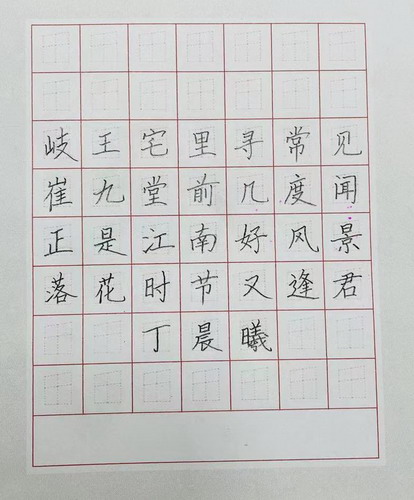 岐王宅里寻常见
崔九堂前几度闻
正是江南好风景
落花时节又逢君
丁晨曦